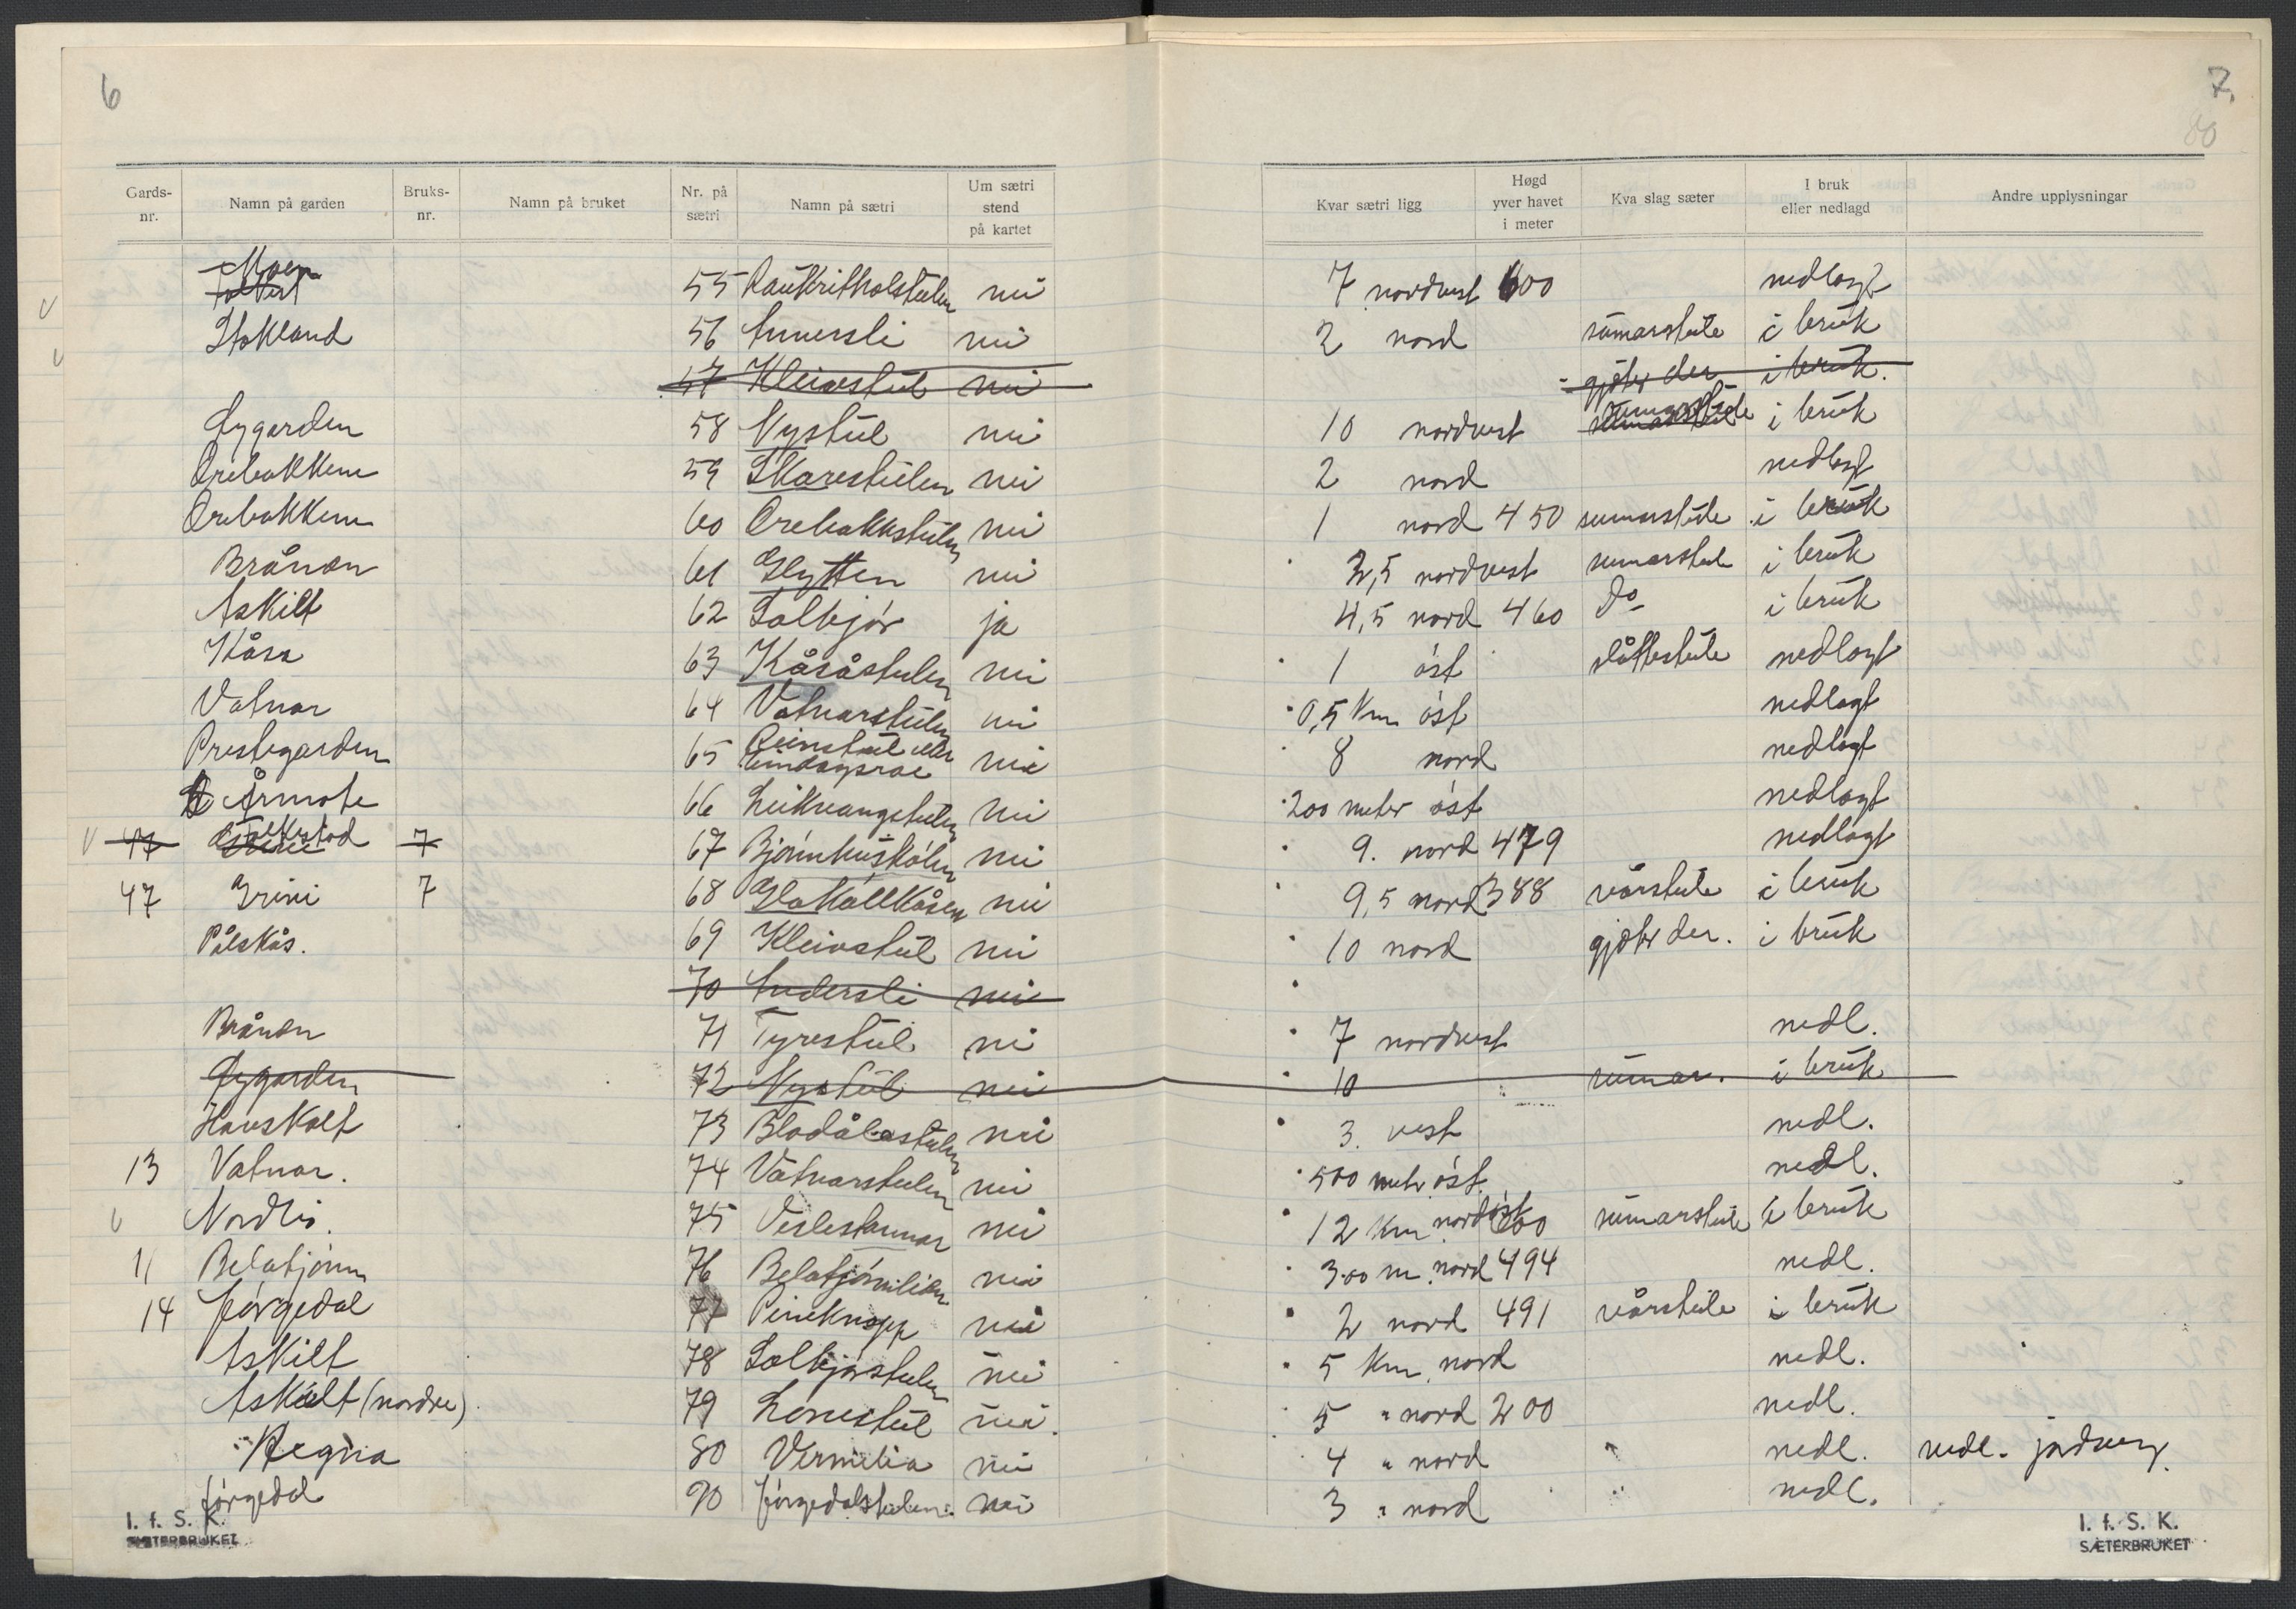 6
7.
80
Gards-nr. Namn på garden Bruks-nr. Namn på bruket Nr. på sætri Namn på sætri Um sætri stend på kartet Kvar sætri ligg Høgd yver havet i meter Kva slag sæter I bruk eller nedlagd Andre upplysningar
Moen 55 nei 7 nordvest 600 nedlagt
Stokland 56 Annersli nei 2 nord sumarstule i bruk
57 Kleivstul nei gjeter der i bruk.
Øygarden 58 Nystul nei 10 nordvest sumarstule i bruk
Orebakken 59 Skarestulen nei 2 nord nedlagt
Orebakken 60 Orebakkstulen nei 1 nord 450 sumarstule i bruk
Brånan 61 Glytten nei 2,5 nordvest sumarstule i bruk
Askilt 62 Solbjør ja 4,5 nord 460 Do i bruk
Kåsa 63 Kåsåstulen nei 1 øst slåttestule nedlagt
Vatnar 64 Vatnarstulen nei 0,5 Km øst nedlagt
Prestegarden 65 Reinstul eller nei 8 nord nedlagt
Århote 66 Leikvangstulen nei 200 meter øst nedlagt
47 Folkestad 7 67 Bjørnhuskålen nei 9. nord 479 nedlagt
47 Grini 7 68 nei 9,5 nord 388 vårstule i bruk
Pålskås. 69 Kleivstul nei 10 nord gjeter der. i bruk
70 Andersli nei
Brånan 71 Tyrestul nei 7 nordvest nedl.
Øygarden 72 Nystul nei 10 sumar. i bruk
Hauskolt 73 Blodålastulen nei 3. vest nedl.
13 Vatnar. 74 Vatnarstulen nei 500 meter øst. nedl.
Nordli. 75 Veslestaunar nei 12 Km nordøst 600 sumarstule i bruk
11 Belatjønn 76 Belatjønnlian nei 300 m. nord 494 nedl.
14 Jørgedal 77 Pineknapp nei 2 nord 491 vårstule i bruk
Askilt 78 Solbjørstulen nei 5 Km. nord nedl.
Askilt (nordre) 79 Lonestul nei. 5 " nord 200 nedl.
Hegna 80 Vermelia nei 4 " nord " nedl. nedl. jordveg.
Jørgedal 90 Jørgedalstulen. nei 3 " nord " nedl.
I. f. S. K.
SÆTERBRUKET
I. f. S. K.
SÆTERBRUKET